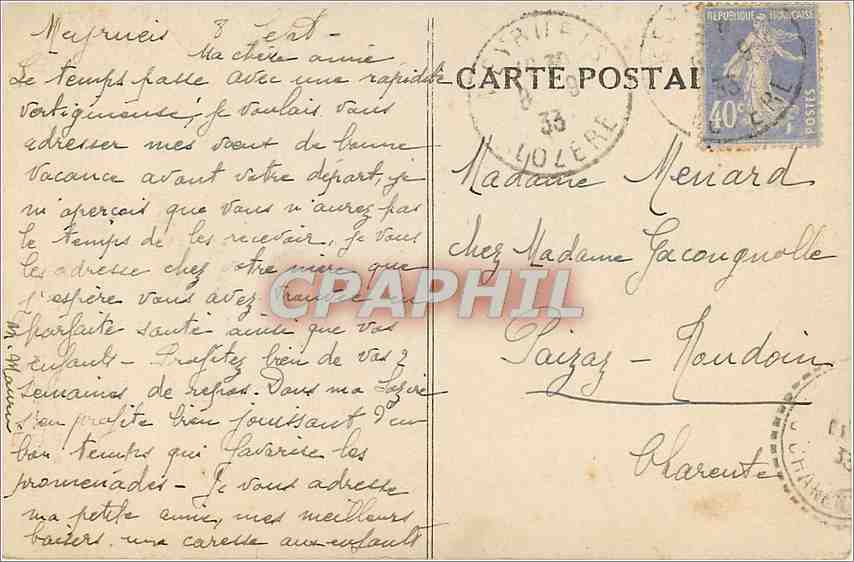 Meyrueis 8 Sept -
Ma chère amie
Le temps passe avec une rapidité
vertigineuse, je voulais vous
adresser mes vœux de bonne
vacance avant votre départ, je
m'aperçois que vous n'aurez pas
le temps de les recevoir, je vous
les adresse chez votre mère que
j'espère vous avez trouvée en
parfaite santé ainsi que vos
enfants - Profitez bien de vos 2
semaines de repos. Dans ma Lozère
j'en profite bien jouissant d'un
bon temps qui favorise les
promenades - Je vous adresse
ma petite amie, mes meilleurs
baisers. une caresse aux enfants
CARTE POSTAL
MEYRUEIS
8 9
33
LOZERE
REPUBLIQUE FRANÇAISE
40c
POSTES
Madame Menard
chez Madame Gacougnolle
Paizay - Naudoin
Charente
CPAPHIL
33